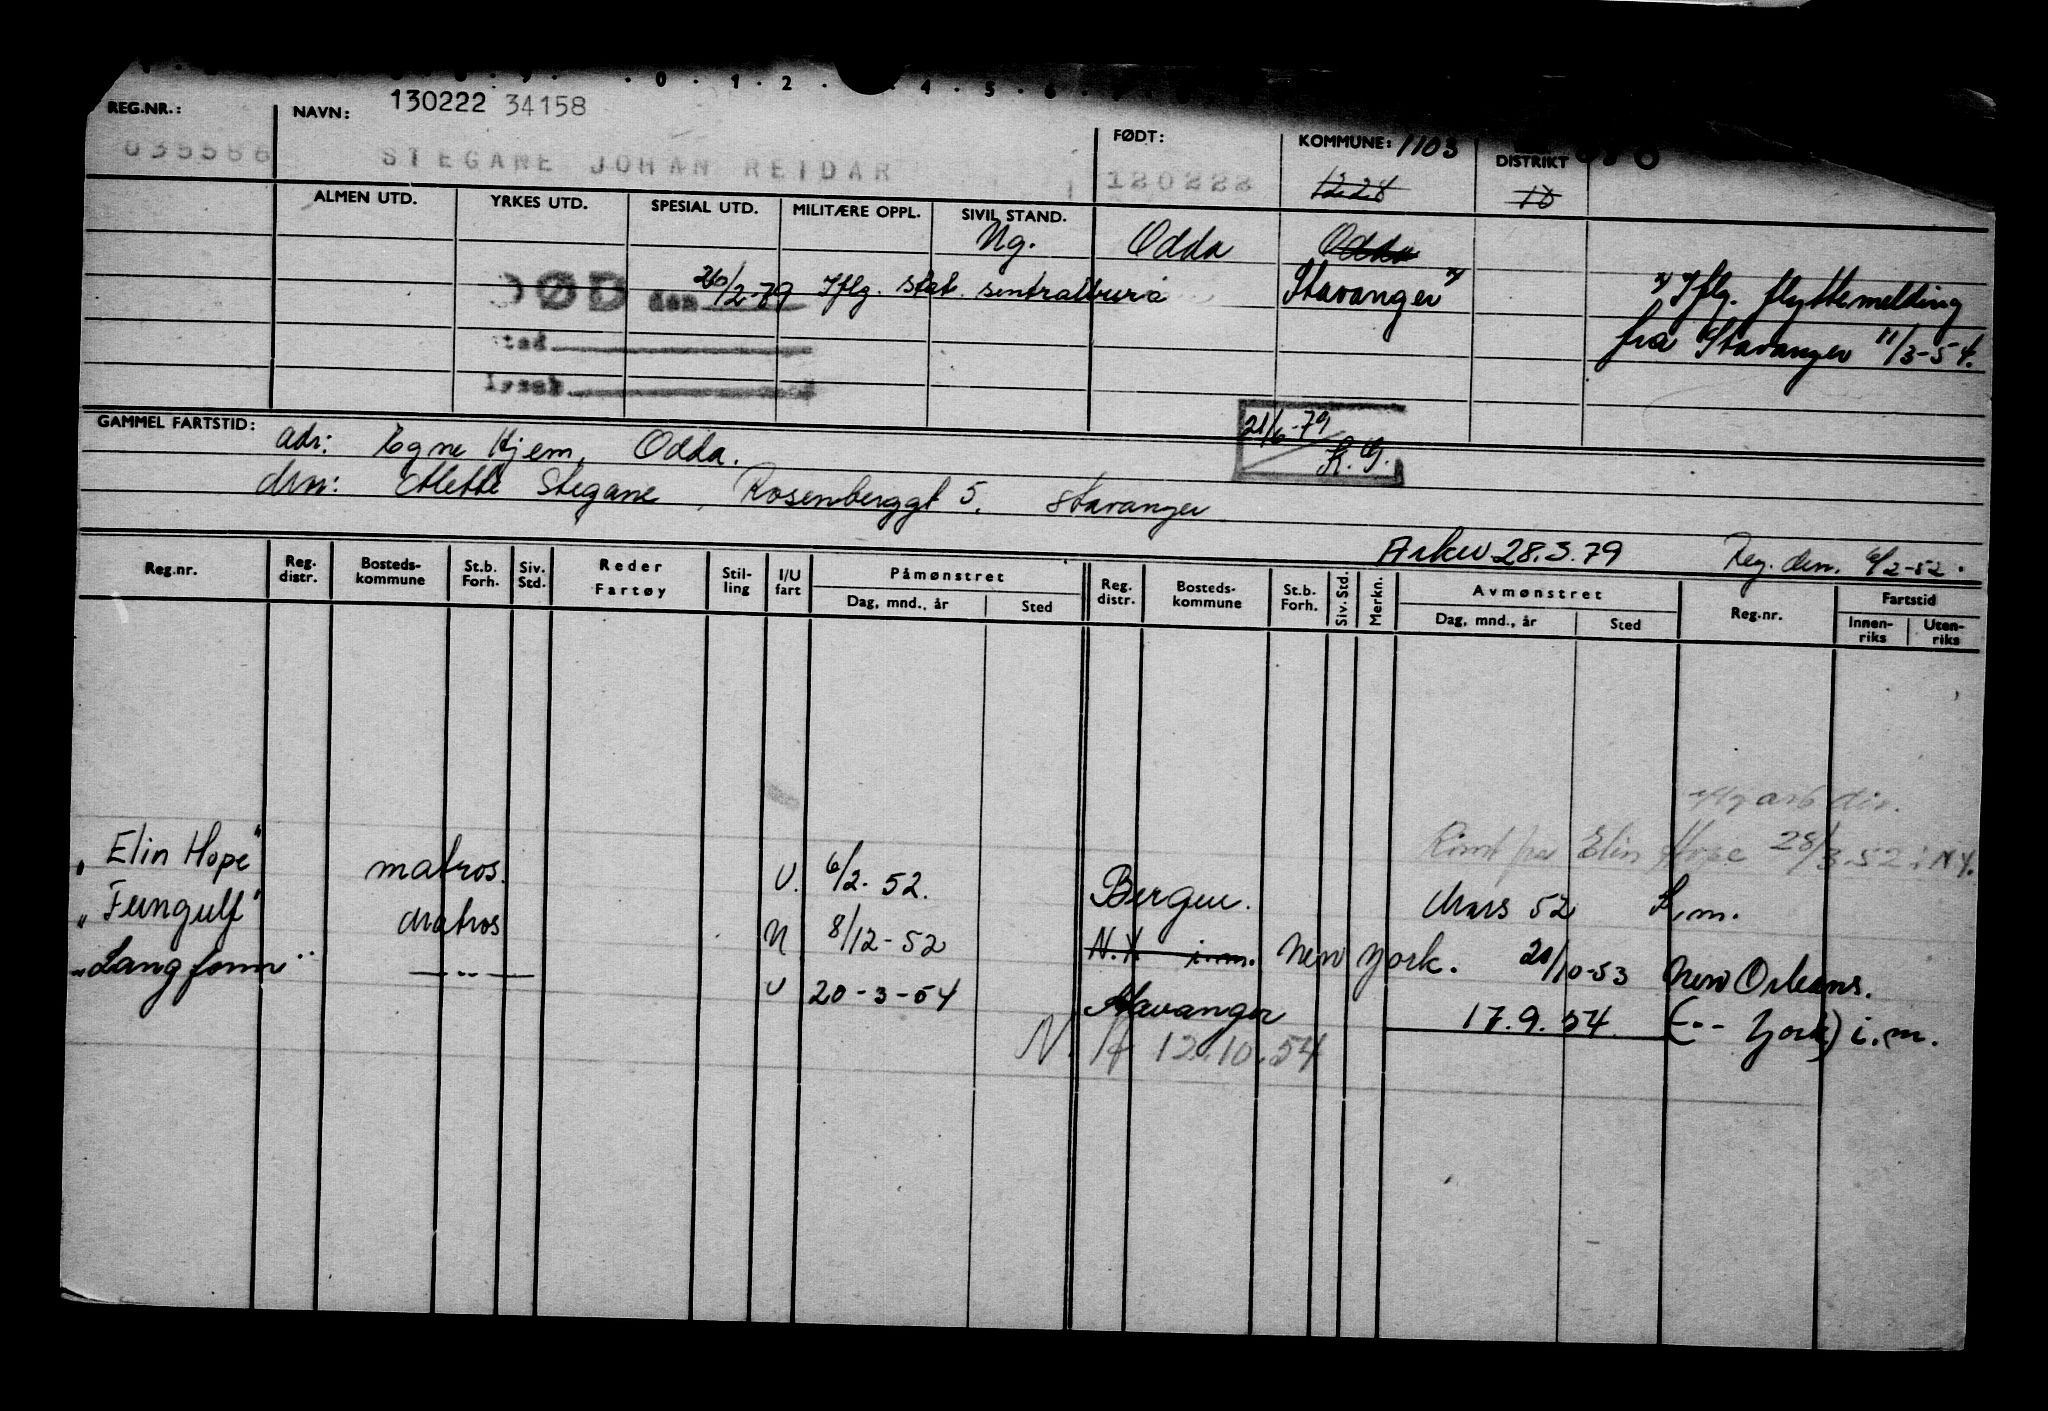 0 · 1 · 2 · 4 · 5 · 6
REG.NR.: NAVN: 130222 34158 FØDT: KOMMUNE: 1103 DISTRIKT
035586 STEGANE JOHAN REIDAR 120222 1228 18
ALMEN UTD. YRKES UTD. SPESIAL UTD. MILITÆRE OPPL. SIVIL STAND.
Ug. Odda Odda
DØD den 26/2-79 Iflg. stat. sentralburå Stavanger x) x) Iflg. flyttemelding
sted fra Stavanger 11/3-54.
GAMMEL FARTSTID: adr: Egne Hjem, Odda. 21/6-79
Stegane, Rosenberggt 5. Stavanger
Arkiv 28.3.79 Reg. den. 6/2-52.
Reg.nr. Reg. distr. Bosteds-kommune St.b. Forh. Siv. Std. Reder Fartøy Stil-ling I/U fart Påmønstret Dag, mnd., år Sted Reg. distr. Bosteds-kommune St.b. Forh. Siv. Std. Merkn. Avmønstret Dag, mnd., år Sted Reg.nr. Fartstid Innen-riks Uten-riks
arb dir.
Elin Hope 28/3.52 i N.Y.
"Elin Hope" matros. U. 6/2. 52. Bergen. Mars 52
"Ferngulf" Matros U 8/12-52 N.Y. i.m. New York. 20/10-53 New Orleans.
"Langfonn" —"— U 20-3-54 Stavanger 17.9.54 (-"- York) i.m.
12.10.54